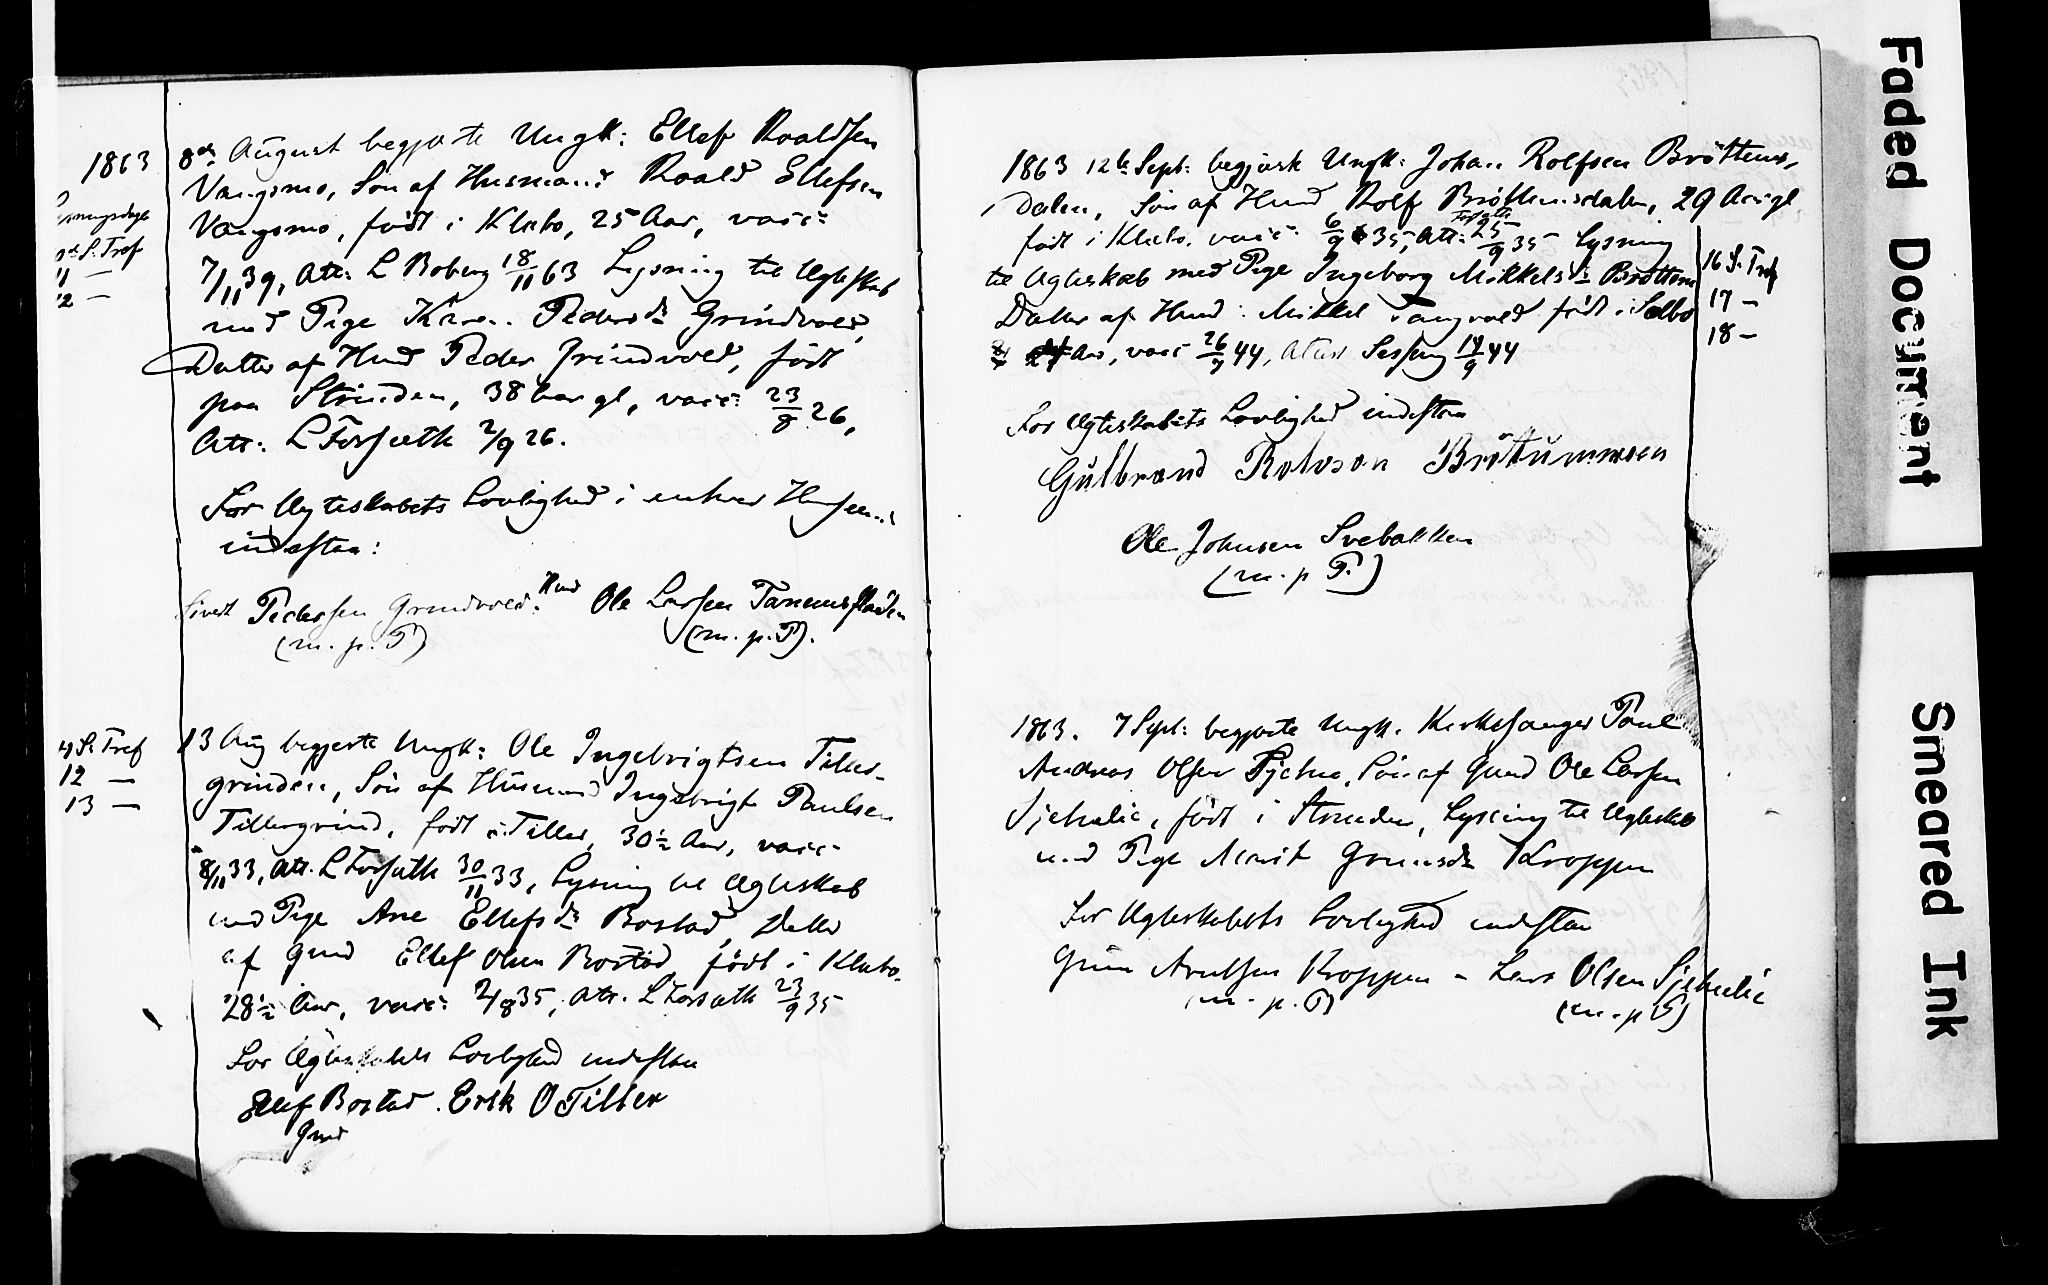 1863
8de August begjærte Ungk: Ellef Roaldsen
Vangsmo, Søn af Husmand Roald Ellefsen
Vangsmo, født i Klæbo, 25 Aar, vacc:
7/11 39, Att: L Roberg 18/11 63 Lysning til Ægteskab
med Pige Karen Pedersdr Grindvold,
Datter af Hmd Peder Grindvold, født
paa Strinden, 38 Aar gl, vacc: 23/8 26,
Att: L Forsæth 2/9 26.
For Ægteskabets Lovlighed i enhver Henseende
indestaa:
Sivert Pedersen Grindvold. Hmd Ole Larsen Tanemsfladen
(m. p. P) (m. p. P).
S. Tref
11 —
12 —
11 S. Tref
12 —
13 —
13 Aug begjerte Ungk: Ole Ingebrigtsen Tiller-
grinden, Søn af Husmand Ingebrigt Paulsen
Tillergrind, født i Tiller, 30½ Aar, vacc:
8/11 33, Att. L Forsæth 30/11 33, Lysning til Ægteskab
med Pige Ane Ellefsdr Bostad Datter
af Gmd Ellef Olsen Bostad, født i Klæbo.
28½ Aar, vacc: 2/8 35, Att. L Forsæth 23/9 35
For Ægteskabets Lovlighed indestaa
Ellef Bostad. Erik O Tiller
Gmd
1863 12te Sept: begjærte Ungk: Johan Rolfsen Brøttems-
Dalen, Søn af Hmd Rolf Brøttemsdalen, 29 Aar gl
født i Klæbo. vacc: 6/9 35, Att: Forsæth 25/9 35 Lysning
til Ægteskab med Pige Ingeborg Mikkelsdr Brøttem
Datter af Hmd: Mikkel Langvold født i Selbo
Aar, vacc 26/7 44, Attest Sesseng 14/9 44
16 S. Tref
17 —
18 —
For Ægteskabets Lovlighed indestaa
Gulbrand Rolvson Brøttummoen
Ole Johnsen Svebakken
(m. p P.)
1863. 7 Sept: begjærte Ungk. Kirkesanger Paul
Andreas Olsen Sjetne, Søn af Gmd Ole Larsen
Sjetnelie, født i Strinden, Lysning til Ægteskab
med Pige Marit Grunsdr Kroppen
For Ægteskabets Lovlighed indestaa
Grun Arntsen Kroppen - Lars Olsen Sjetnelie
(m. p. P) (m. p P)
Faded Document
Smeared Ink